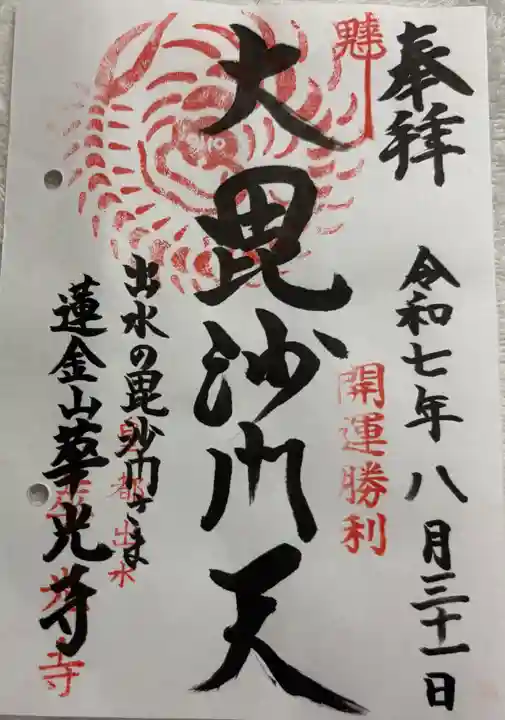 奉拝
令和七年八月三十一日
開運勝利
大毘沙門天
出水の毘沙門さま
京都出水
蓮金山華光寺
華光寺